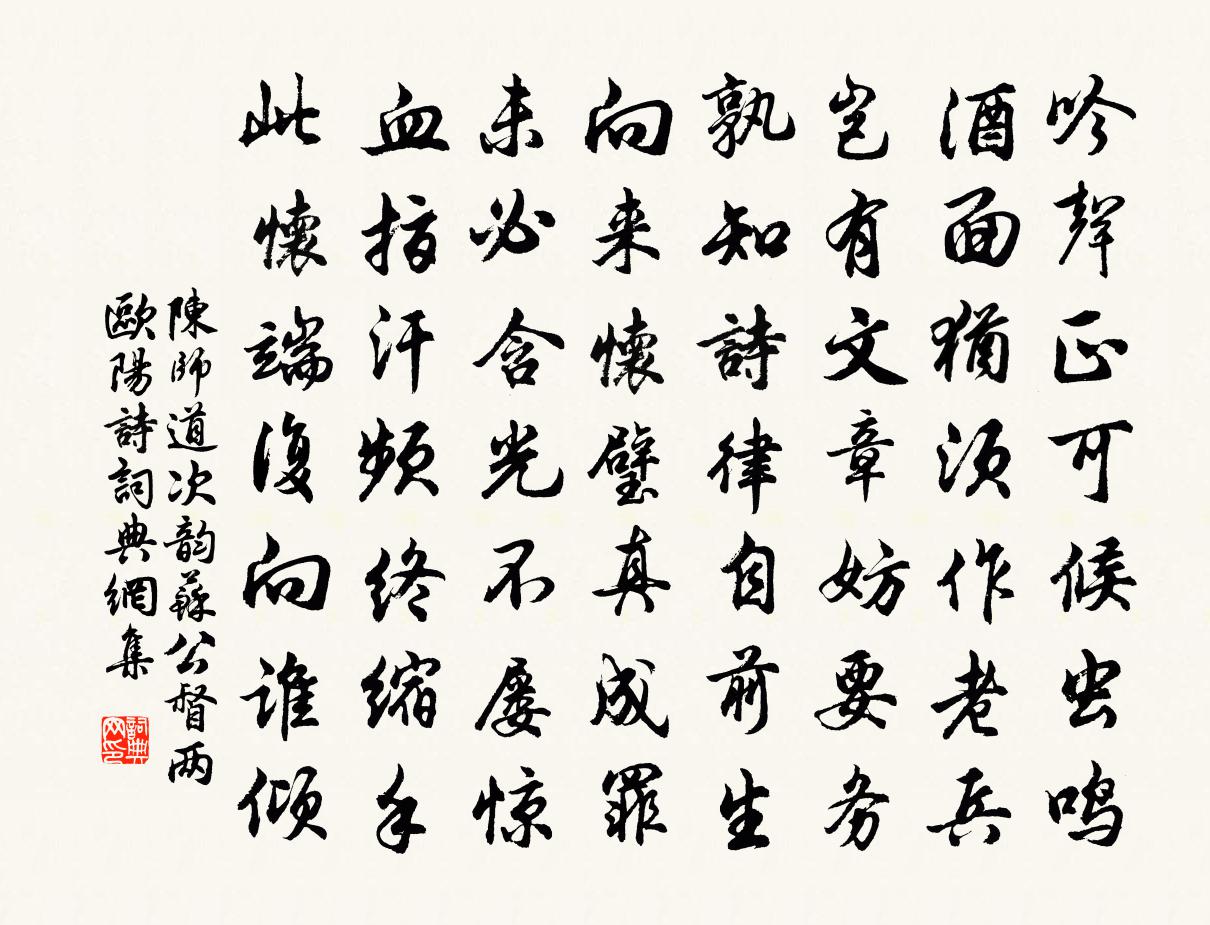 吟聲正可候虫鳴
酒面猶須作老兵
豈有文章妨要务
孰知詩律自前生
向来懷璧真成罪
未必含光不屡惊
血指汗频终缩手
此懷端復向谁倾
陳師道次韵蘇公督两
歐陽詩詞典網集
詞典网印